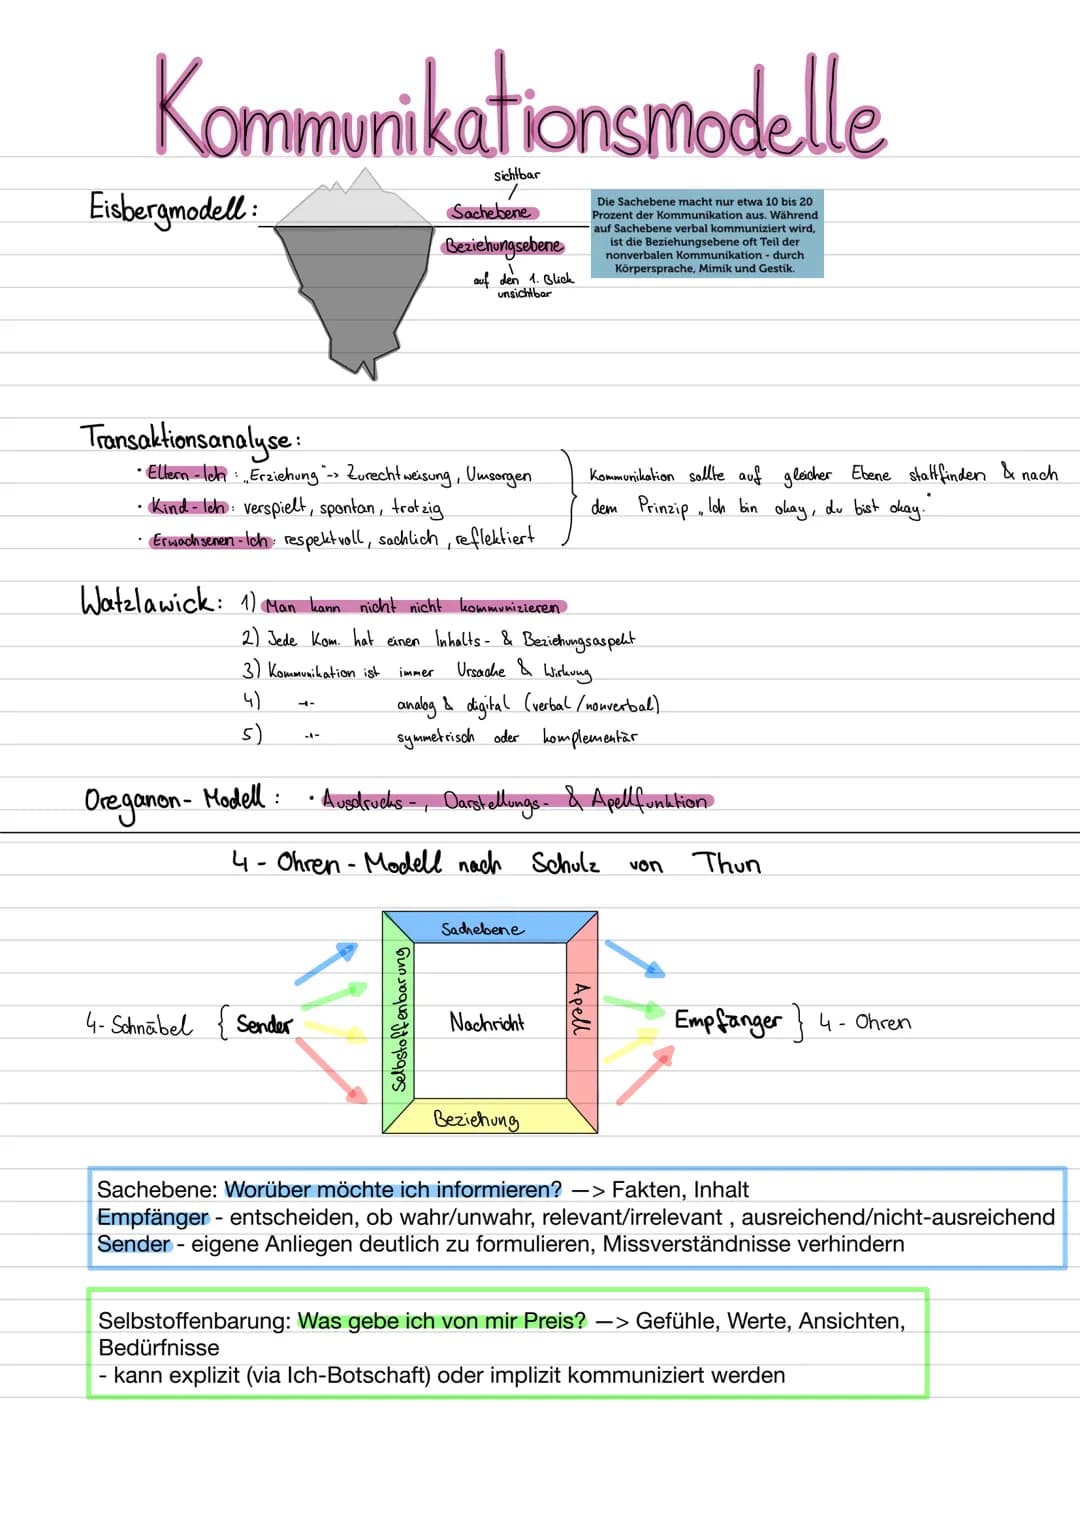 Kommunikationsmodelle
Eisbergmodell:
sichtbar
Sachebene
Beziehungsebene
auf den 1. Blick
unsichtbar
Die Sachebene macht nur etwa 10 bis 20
Prozent der Kommunikation aus. Während
auf Sachebene verbal kommuniziert wird,
ist die Beziehungsebene oft Teil der
nonverbalen Kommunikation - durch
Körpersprache, Mimik und Gestik.
Transaktionsanalyse:
· Eltern-Ich: „Erziehung" -> Zurechtweisung, Umsorgen
· Kind-Ich: verspielt, spontan, trotzig
· Erwachsenen-Ich: respektvoll, sachlich, reflektiert
Kommunikation sollte auf gleicher Ebene stattfinden & nach
dem Prinzip „Ich bin okay, du bist okay."
Watzlawick: 1) Man kann nicht nicht kommunizieren
2) Jede Kom. hat einen Inhalts- & Beziehungsaspekt
3) Kommunikation ist immer Ursache & Wirkung
4) -"- analog & digital (verbal/nonverbal)
5) -"- symmetrisch oder komplementär
Oreganon-Modell: · Ausdrucks-, Darstellungs- & Apellfunktion
4-Ohren-Modell nach Schulz von Thun
Sachebene
Selbstoffenbarung
Apell
4-Schnäbel { Sender
Nachricht
Empfänger } 4-Ohren
Beziehung
Sachebene: Worüber möchte ich informieren? —> Fakten, Inhalt
Empfänger - entscheiden, ob wahr/unwahr, relevant/irrelevant , ausreichend/nicht-ausreichend
Sender - eigene Anliegen deutlich zu formulieren, Missverständnisse verhindern
Selbstoffenbarung: Was gebe ich von mir Preis? —> Gefühle, Werte, Ansichten,
Bedürfnisse
- kann explizit (via Ich-Botschaft) oder implizit kommuniziert werden